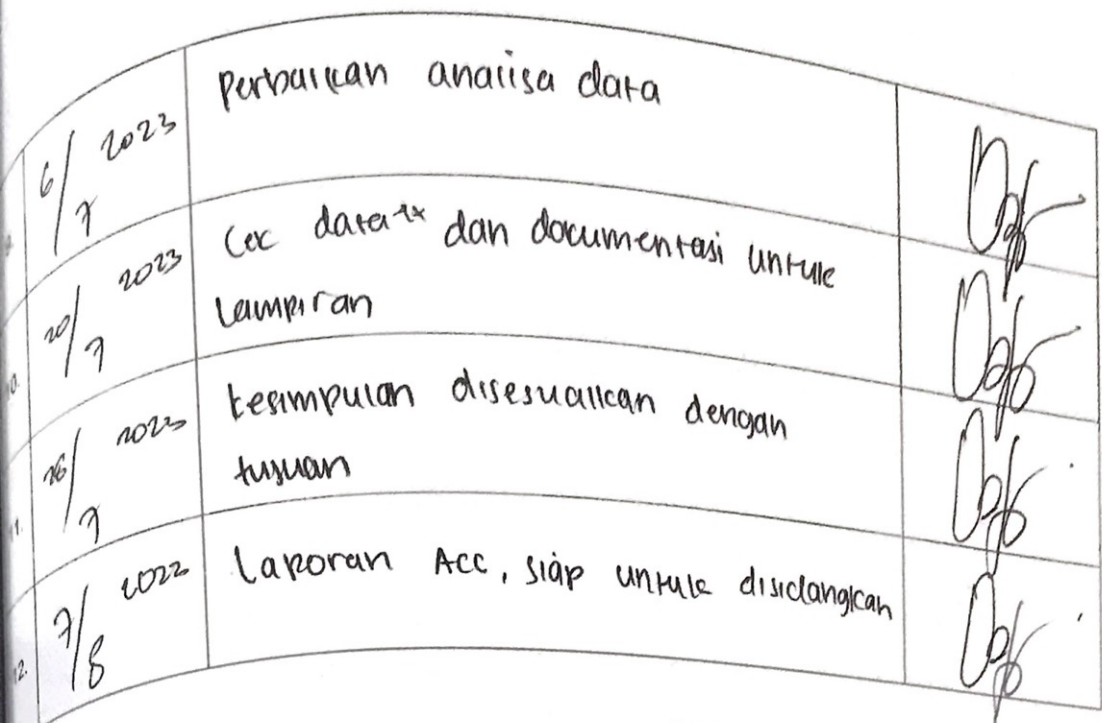 6/7 2023
Perbaikan analisa data
20/7 2023
Cek data dan documentasi untuk
Lampiran
26/7 2023
kesimpulan disesuaikan dengan
tujuan
12.
7/8 2022
Laporan Acc, siap untuk disidangkan